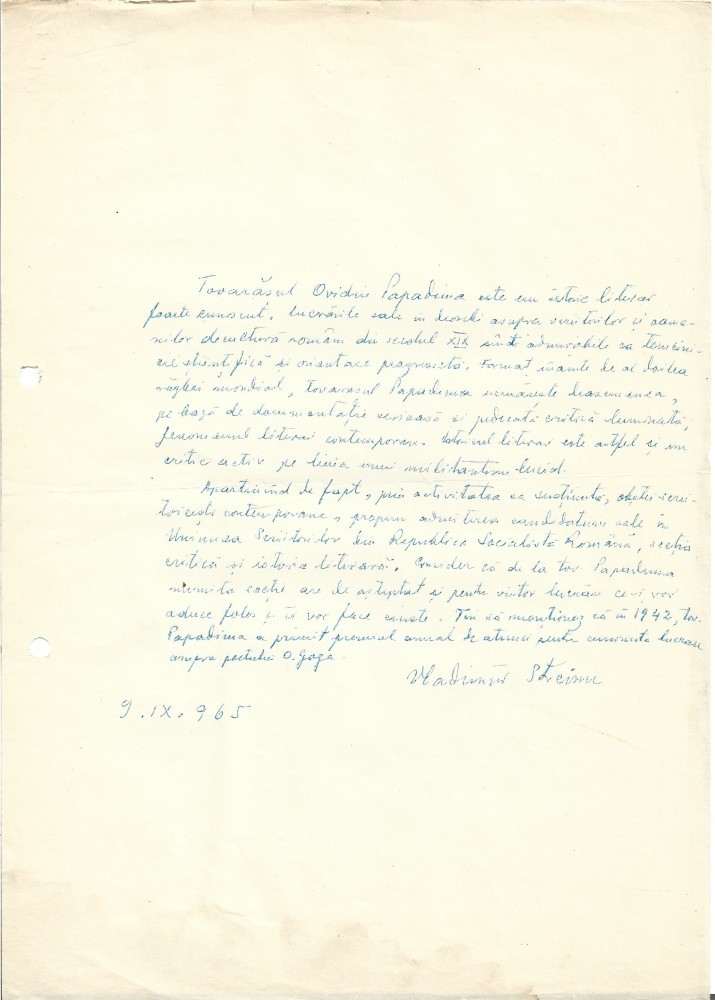 Tovarăşul Ovidiu Papadima este un istoric literar
foarte cunoscut. Lucrările sale în deosebi asupra scriitorilor şi oame-
nilor de cultură români din secolul XIX sînt admirabile ca temeini-
cie ştientifică şi orientare progresistă. Format înainte de al doilea
război mondial, tovarăşul Papadima urmăreşte deasemenea,
pe bază de documentaţie serioasă şi judecată critică luminată,
fenomenul literar contemporan. Istoricul literar este astfel şi un
critic activ pe linia unui militantism lucid.
Aparţinînd de fapt, prin activitatea sa susţinută, obştei scrii-
toriceşti contemporane, propun admiterea candidaturii sale în
Uniunea Scriitorilor din Republica Socialistă Română, secţia
critică şi istorie literară. Consider că de la tov. Papadima
numita secţie are de aşteptat şi pentru viitor lucrări ce-i vor
aduce folos şi îi vor face cinste. Ţin să menţionez că în 1942, tov.
Papadima a primit premiul anual de atunci pentru cunoscuta lucrare
asupra poetului O. Goga.
Vladimir Streinu
9.IX.965